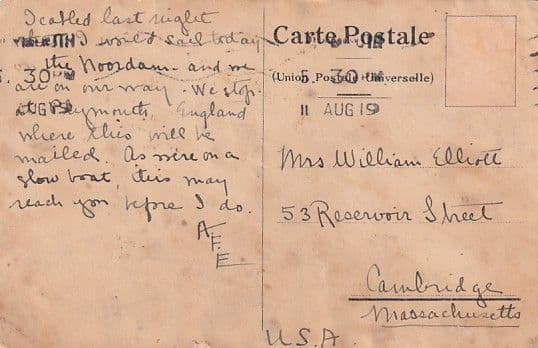 I cabled last night
I would sail today
on the Noordam and we
are on our way. We stop
at Plymouth, England
where this will be
mailed. As we're on a
slow boat, this may
reach you before I do.
A.
F.
E
Carte Postale
(Union Postale Universelle)
5. 30
5. 30
11 AUG 19
AUG 19
Mrs William Elliott
53 Reservoir Street
Cambridge
Massachusetts
U.S.A.